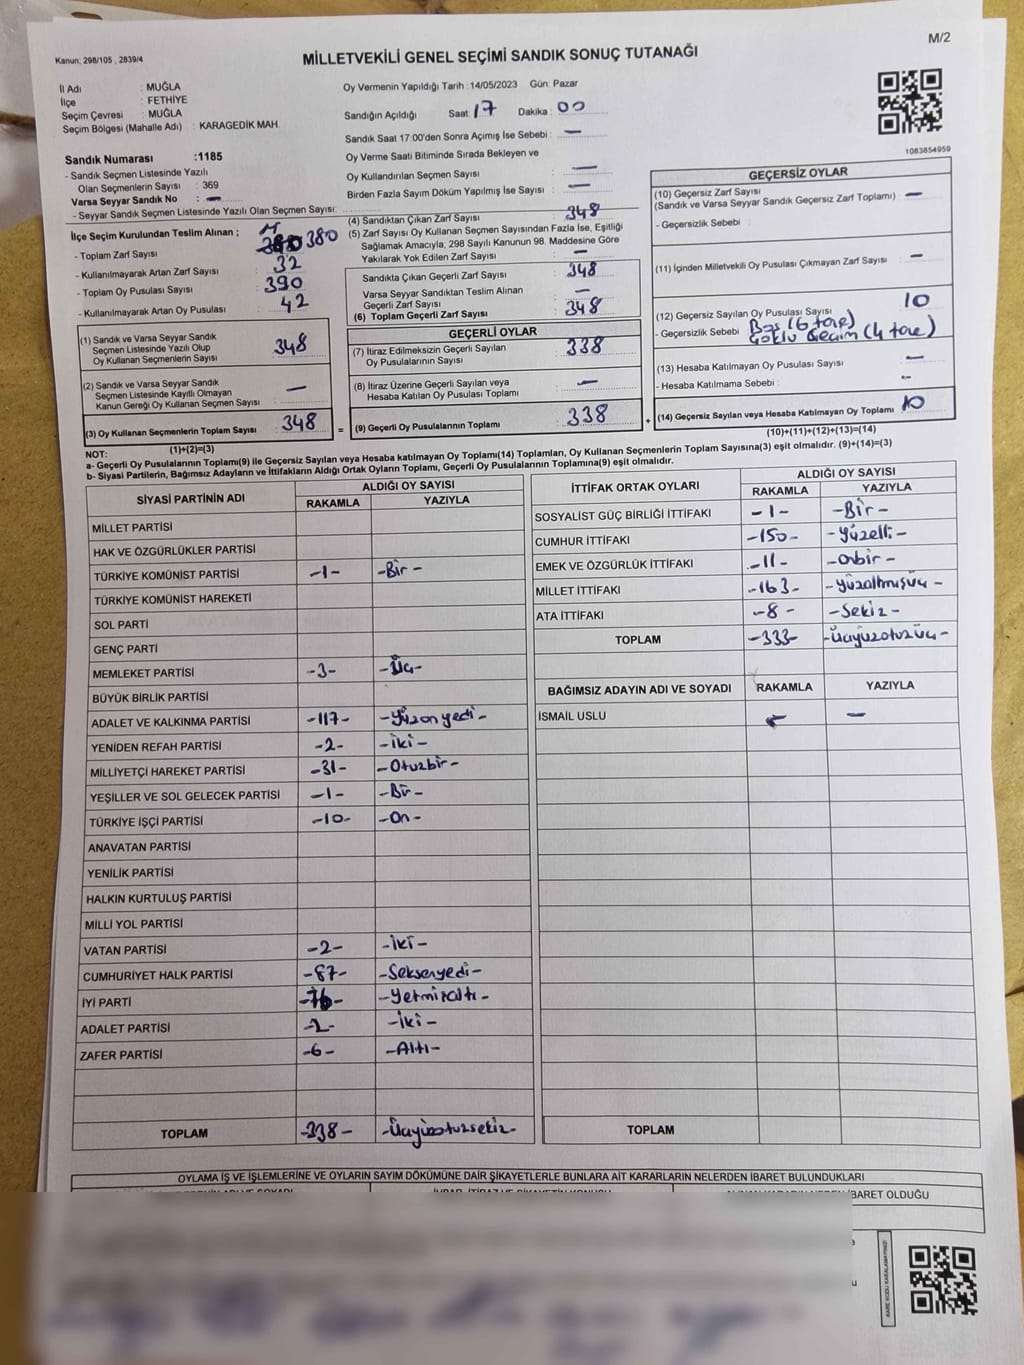 M/2
Kanun: 298/105 , 2839/4
MİLLETVEKİLİ GENEL SEÇİMİ SANDIK SONUÇ TUTANAĞI
İl Adı : MUĞLA
İlçe : FETHİYE
Seçim Çevresi : MUĞLA
Seçim Bölgesi (Mahalle Adı) : KARAGEDİK MAH.
Sandık Numarası :1185
- Sandık Seçmen Listesinde Yazılı
Olan Seçmenlerin Sayısı : 369
Varsa Seyyar Sandık No : -
- Seyyar Sandık Seçmen Listesinde Yazılı Olan Seçmen Sayısı:
Oy Vermenin Yapıldığı Tarih :14/05/2023 Gün: Pazar
Sandığın Açıldığı Saat: 17 Dakika: 00
Sandık Saat 17:00'den Sonra Açımış İse Sebebi : -
Oy Verme Saati Bitiminde Sırada Bekleyen ve
Oy Kullandırılan Seçmen Sayısı : -
Birden Fazla Sayım Döküm Yapılmış İse Sayısı : -
1083854959
İlçe Seçim Kurulundan Teslim Alınan ;
- Toplam Zarf Sayısı : 380
- Kullanılmayarak Artan Zarf Sayısı : 32
- Toplam Oy Pusulası Sayısı : 390
- Kullanılmayarak Artan Oy Pusulası : 42
(1) Sandık ve Varsa Seyyar Sandık
Seçmen Listesinde Yazılı Olup
Oy Kullanan Seçmenlerin Sayısı : 348
(2) Sandık ve Varsa Seyyar Sandık
Seçmen Listesinde Kayıtlı Olmayan
Kanun Gereği Oy Kullanan Seçmen Sayısı : -
(3) Oy Kullanan Seçmenlerin Toplam Sayısı : 348
(1)+(2)=(3)
(4) Sandıktan Çıkan Zarf Sayısı : 348
(5) Zarf Sayısı Oy Kullanan Seçmen Sayısından Fazla İse, Eşitliği
Sağlamak Amacıyla, 298 Sayılı Kanunun 98. Maddesine Göre
Yakılarak Yok Edilen Zarf Sayısı : -
Sandıkta Çıkan Geçerli Zarf Sayısı : 348
Varsa Seyyar Sandıktan Teslim Alınan
Geçerli Zarf Sayısı : -
(6) Toplam Geçerli Zarf Sayısı : 348
GEÇERLİ OYLAR
(7) İtiraz Edilmeksizin Geçerli Sayılan
Oy Pusulalarının Sayısı : 338
(8) İtiraz Üzerine Geçerli Sayılan veya
Hesaba Katılan Oy Pusulası Toplamı : -
= (9) Geçerli Oy Pusulalarının Toplamı : 338 +
GEÇERSİZ OYLAR
(10) Geçersiz Zarf Sayısı
(Sandık ve Varsa Seyyar Sandık Geçersiz Zarf Toplamı) : -
- Geçersizlik Sebebi :
(11) İçinden Milletvekili Oy Pusulası Çıkmayan Zarf Sayısı : -
(12) Geçersiz Sayılan Oy Pusulası Sayısı : 10
- Geçersizlik Sebebi : Boş (6 tane)
Çoklu Seçim (4 tane)
(13) Hesaba Katılmayan Oy Pusulası Sayısı : -
- Hesaba Katılmama Sebebi : -
(14) Geçersiz Sayılan veya Hesaba Katılmayan Oy Toplamı : 10
(10)+(11)+(12)+(13)=(14)
NOT:
a- Geçerli Oy Pusulalarının Toplamı(9) ile Geçersiz veya Hesaba katılmayan Oy Toplamı(14) Toplamları, Oy Kullanan Seçmenlerin Toplam Sayısına(3) eşit olmalıdır. (9)+(14)=(3)
b- Siyasi Partilerin, Bağımsız Adayların ve İttifakların Aldığı Ortak Oyların Toplamı, Geçerli Oy Pusulalarının Toplamına(9) eşit olmalıdır.
SİYASİ PARTİNİN ADI ALDIĞI OY SAYISI
RAKAMLA YAZIYLA
MİLLET PARTİSİ
HAK VE ÖZGÜRLÜKLER PARTİSİ
TÜRKİYE KOMÜNİST PARTİSİ -1- -Bir-
TÜRKİYE KOMÜNİST HAREKETİ
SOL PARTİ
GENÇ PARTİ
MEMLEKET PARTİSİ -3- -Üç-
BÜYÜK BİRLİK PARTİSİ
ADALET VE KALKINMA PARTİSİ -117- -Yüzonyedi-
YENİDEN REFAH PARTİSİ -2- -İki-
MİLLİYETÇİ HAREKET PARTİSİ -31- -Otuzbir-
YEŞİLLER VE SOL GELECEK PARTİSİ -1- -Bir-
TÜRKİYE İŞÇİ PARTİSİ -10- -On-
ANAVATAN PARTİSİ
YENİLİK PARTİSİ
HALKIN KURTULUŞ PARTİSİ
MİLLİ YOL PARTİSİ
VATAN PARTİSİ -2- -İki-
CUMHURİYET HALK PARTİSİ -87- -Seksenyedi-
İYİ PARTİ -76- -Yetmişaltı-
ADALET PARTİSİ -2- -İki-
ZAFER PARTİSİ -6- -Altı-
TOPLAM -338- -Üçyüzotuzsekiz-
İTTİFAK ORTAK OYLARI ALDIĞI OY SAYISI
RAKAMLA YAZIYLA
SOSYALİST GÜÇ BİRLİĞİ İTTİFAKI -1- -Bir-
CUMHUR İTTİFAKI -150- -Yüzelli-
EMEK VE ÖZGÜRLÜK İTTİFAKI -11- -Onbir-
MİLLET İTTİFAKI -163- -Yüzaltmışüç-
ATA İTTİFAKI -8- -Sekiz-
TOPLAM -333- -Üçyüzotuzüç-
BAĞIMSIZ ADAYIN ADI VE SOYADI RAKAMLA YAZIYLA
İSMAİL USLU - -
TOPLAM
OYLAMA İŞ VE İŞLEMLERİNE VE OYLARIN SAYIM DÖKÜMÜNE DAİR ŞİKAYETLERLE BUNLARA AİT KARARLARIN NELERDEN İBARET BULUNDUKLARI
İBARET OLDUĞU
KARE KODU KARALAMAYINIZ!